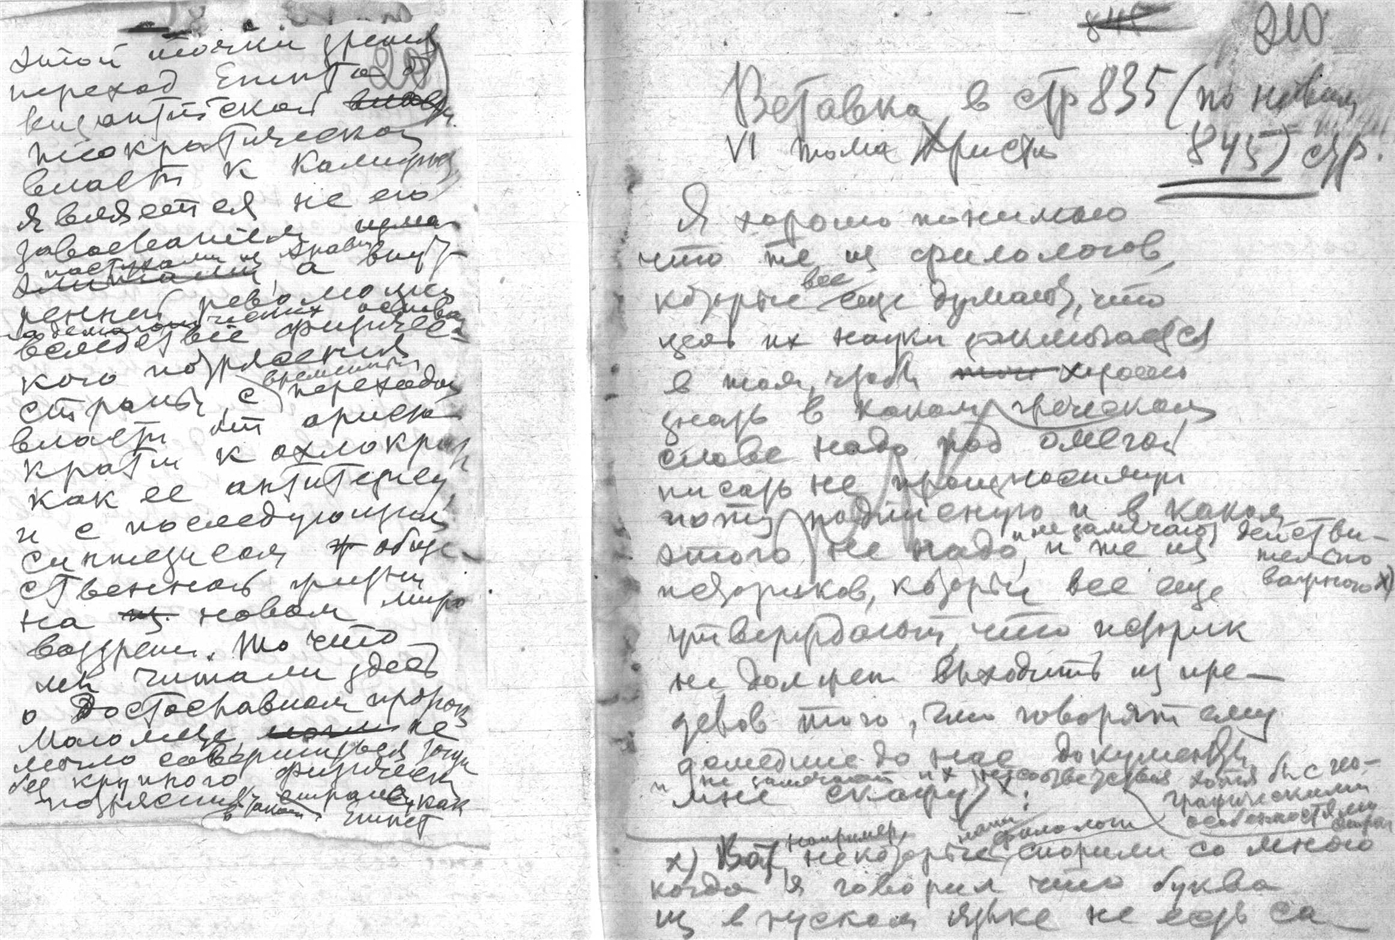 этой точки зрения
переход Египта от
византийской
теократической
власти к Калифату
является не его
завоеванием
пастухами из Аравии
а внут-
ренней революцией
вследствие физичес-
кого потрясения
временным
страны, с переходом
власти от аристо-
кратии к охлократии
как ее антитезису
и с последующим
синтезисом обще-
ственной жизни
на новом миро
воззрении. То что
мы читали здесь
о Достославном пророке
Магомеде не
могло совершиться тогда
без крупного физическ
потрясения страны как
Египет
210
Вставка в стр 835 (по новым
VI тома Христа 845) стр.
Я хорошо понимаю
что те из филологов,
которые все еще думают, что
цель их науки заключается
в том, чтобы хорошо
знать в каком греческом
слове надо под омегой
писать не произносимую
йоту подписную и в каком
этого не надо, и не замечают действи-
тельно
важного х)
и те из
историков, которые все еще
утверждают, что историк
не должен выходить из пре-
делов того, что говорят ему
дошедшие до нас документы,
и не замечают их несоответствия хотя бы с гео-
графическими
особенностями
мне скажут:
х) Вот, например, некоторые наши филологи спорили со мною
когда я говорил что буква
щ в русском языке не есть са